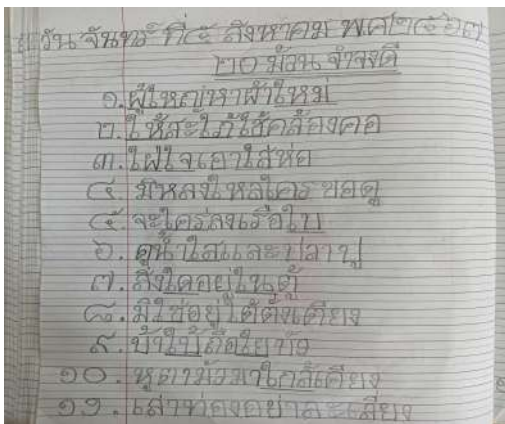 วันจันทร์ ที่๕ สิงหาคม พศ๒๕๖๗
๒๐ ม้วน จำจงดี
๑. ผู้ใหญ่หาผ้าใหม่
๒. ให้สะใภ้ใช้คล้องคอ
๓. ใฝ่ใจเอาใส่ห่อ
๔. มิหลงใหลใคร ขอดู
๕. จะใคร่ลงเรือใบ
๖. ดูน้ำใสและปลาปู
๗. สิ่งใดอยู่ในตู้
๘. มิใช่อยู่ใต้ตั่งเตียง
๙. บ้าใบ้ถือใยบัว
๑๐. หูตามัวมาใกล้เคียง
๑๑. เล่าท่องอย่าละเลี่ยง